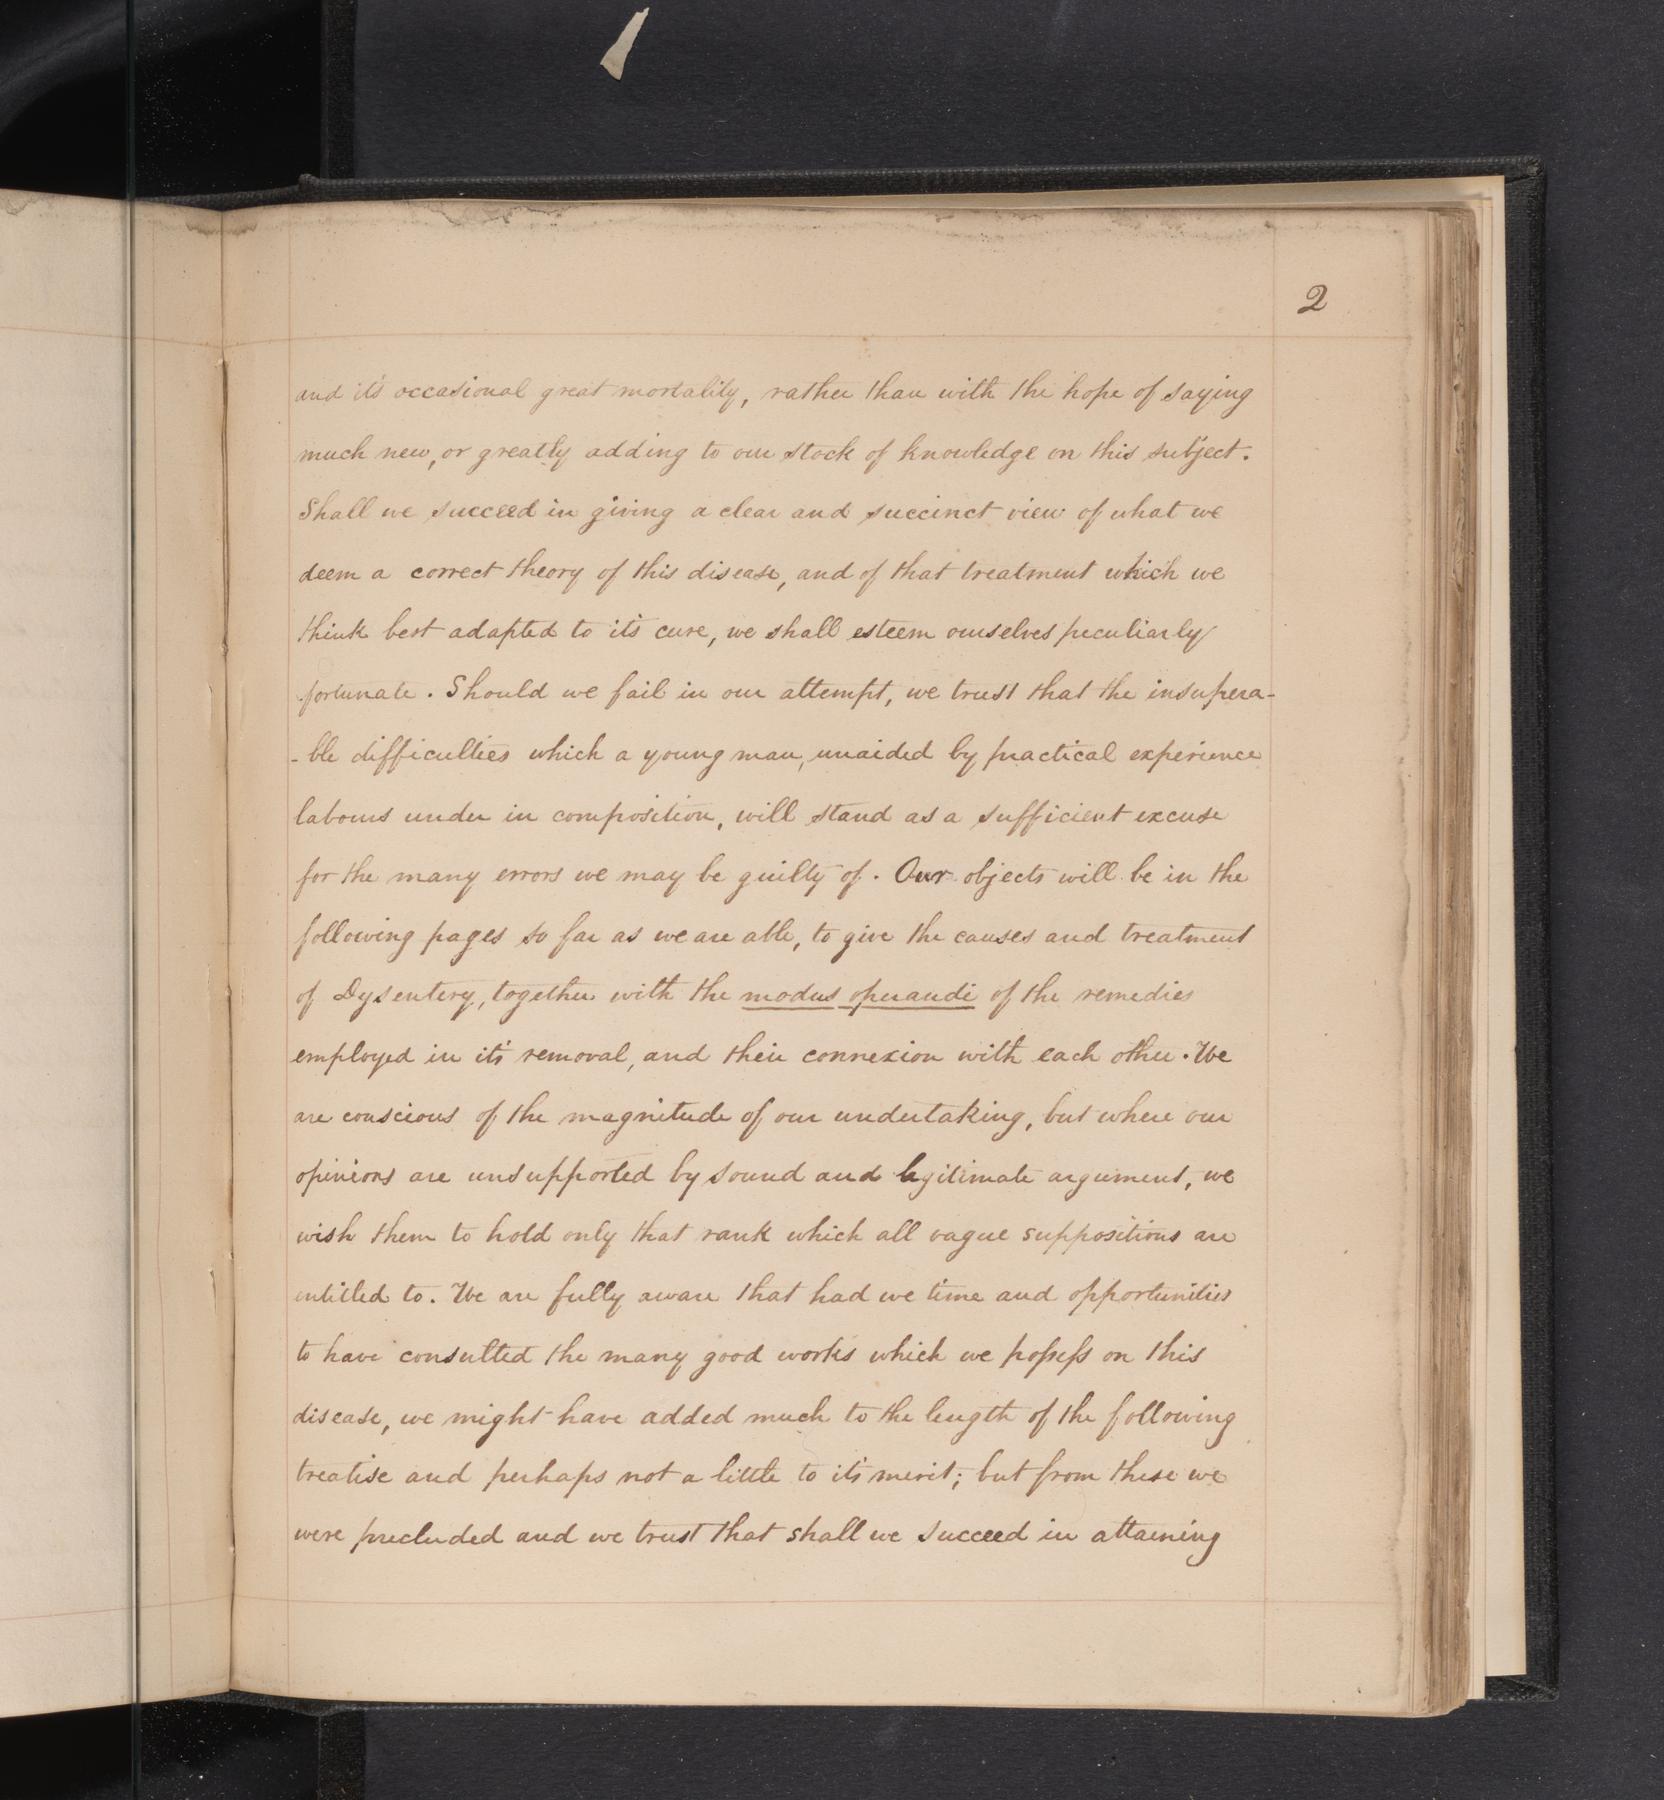 2
and it's occasional great mortality, rather than with the hope of saying
much new, or greatly adding to our stock of knowledge on this subject.
Shall we succeed in giving a clear and succinct view of what we
deem a correct theory of this disease, and of that treatment which we
think best adapted to it's cure, we shall esteem ourselves peculiarly
fortunate. Should we fail in our attempt, we trust that the insupera-
-ble difficulties which a young man, unaided by practical experience
labours under in composition, will stand as a sufficient excuse
for the many errors we may be guilty of. Our objects will be in the
following pages so far as we are able, to give the causes and treatment
of Dysentery, together with the modus operandi of the remedies
employed in it's removal, and their connexion with each other. We
are conscious of the magnitude of our undertaking, but where our
opinions are unsupported by sound and legitimate argument, we
wish them to hold only that rank which all vague suppositions are
entitled to. We are fully aware that had we time and opportunities
to have consulted the many good works which we possess on this
disease, we might have added much to the length of the following
treatise and perhaps not a little to it's merit; but from these we
were precluded and we trust that shall we succeed in attaining